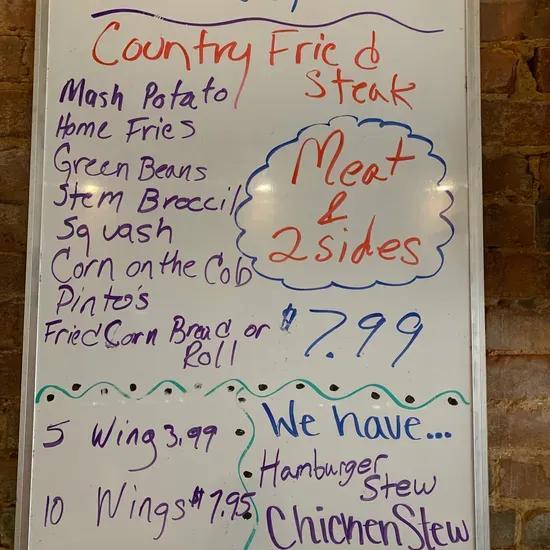 Country Fried
Steak
Mash Potato
Home Fries
Green Beans
Stem Broccil
Squash
Corn on the Cob
Pinto's
Fried Corn Bread or
Roll
Meat
&
2 sides
$7.99
5 Wing 3.99
10 Wings $7.95
We have...
Hamburger
Stew
Chicnen Stew